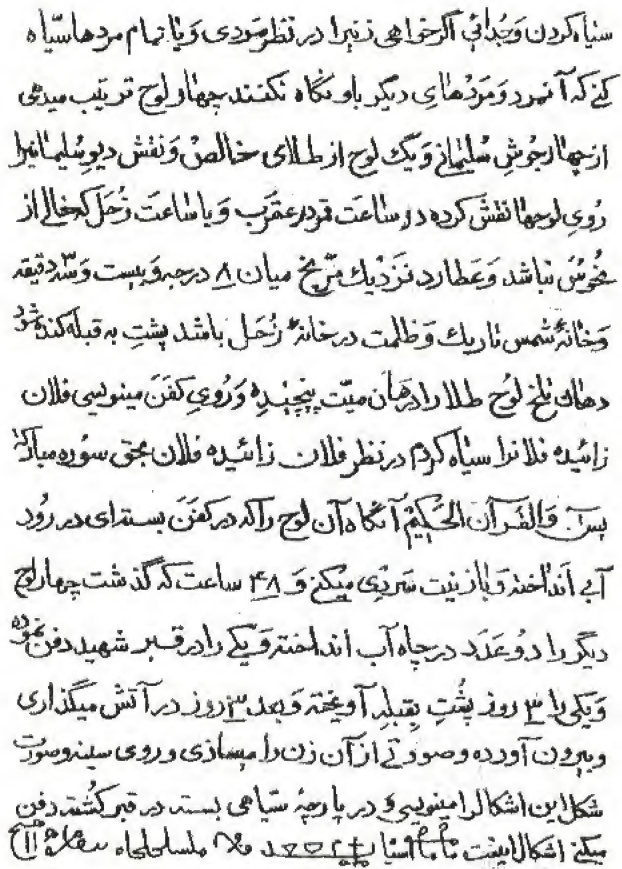 سیاه کردن وَجُدائی اگر خواهی زنیرا در نظر مَردی وَیا تمام مردها سیاه
کنے که آنمرد وَمَردهایِ دیگر باو نگاه نکنند چهار لوح ترتیب میدهی
از چهار جوشِ سُلیمانے وَیک لوح از طلای خالص وَنقش دیوِ سُلیمانیرا
رُویِ لوحها نقش کرده در ساعت قمر در عقرَب وَیا ساعت زُحَل که خالے از
نحُوسَ نباشد وَعَطارد نزدیك مرّیخ میان ۸ درجه وَبیست وَسه دقیقه
وَخانهٔ شمس تاریك وَظلمت در خانهٔ زُحَل باشد پشتِ به قبله کنده شود
لوح طلا را در دهان میّت پیچیده وَرُویِ کفنَ مینویسی فلان
زائیده فلانرا سیاه کردم در نظر فلان زائیده فلان بحق سوره مبارکه
یسٓ وَالقُرآن الحَکیِمْ آنگاه آن لوح راکه در کفَنَ بسته‌ای در رُود
آبے اَنداخته وَباز نیت سَردی میکنے وَ ۴۸ ساعت که گذشت چهار لوح
دیگر را دُو عَدَد در چاه آب انداخته وَیکے را در قبر شهید دفن نموده
وَیکی را ۳ روز پُشتِ بِقبلِه آویخته وَبعد ۳ روز در آتش میگذاری
وبیرون آورده وصورتے از آن زن را میسازی و روی سینه وصورت
شکل این اشکالرا مینویسی وَ در پارچهٔ سیاهی بسته در قبر کُشته دفن
میکنے اشکال اینست